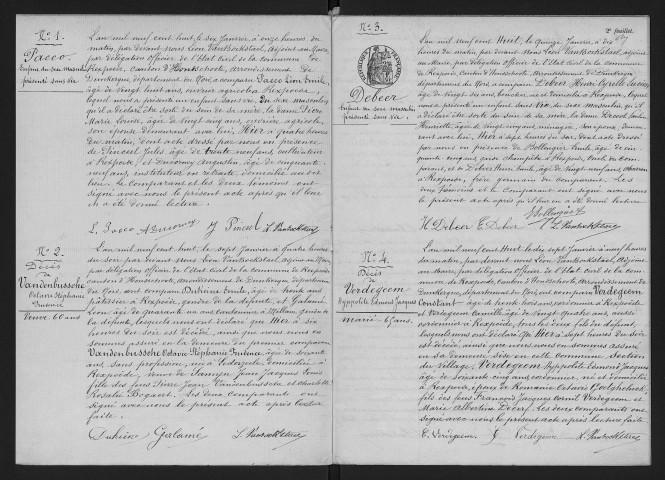 N° 1.
Pacco
enfant du sexe masculin
présenté sans vie
L'an mil neuf cent huit, le six Janvier, à onze heures du
matin, par devant nous Léon VanBockstael, adjoint au Maire
par délégation officier de l'Etat Civil de la commune de
Rexpoëde, canton d'Hondschoote, arrondissement de
Dunkerque, département du Nord, a comparu Pacco Léon Emile,
âgé de vingt huit ans, ouvrier agricole à Rexpoëde,
lequel nous a présenté un enfant sans vie, du sexe masculin,
qu'il a déclaré être sorti du sein de sa mère, la dame
Marie Louise, âgée de vingt ans, ouvrière agricole,
son épouse demeurant avec lui, Hier à quatre heures
du matin, dont acte dressé par nous en présence
de Pincel Jules, âgé de trente neuf ans, cultivateur
à Rexpoëde, et Ausorny Augustin, âgé de cinquante
neuf ans, instituteur en retraite, domicilié au dit
lieu. Le comparant et les deux témoins ont
signé avec nous le présent acte après qu'il leur
en a été donné lecture.
L. Pacco J Pincel L. VanBockstael
N° 2.
Décès
de
Vandenbussche
Octavie Stéphanie
Prudence
Veuve, 60 ans
L'an mil neuf cent huit, le sept Janvier à quatre heures
du soir par devant nous Léon VanBockstael, adjoint au Maire
par délégation officier de l'Etat civil de la commune de Rexpoëde
canton d'Hondschoote, arrondissement de Dunkerque, département
du Nord, ont comparu Duhène Emile, âgé de trente ans
pâtissier à Rexpoëde, gendre de la défunte, et Galamé
Léon, âgé de quarante un ans cantonnier à Killem, gendre de
la défunte, lesquels nous ont déclaré que Hier à six
heures du soir est décédée, ainsi que nous nous en
sommes assuré en la demeure du premier comparant
Vandenbussche Octavie Stéphanie Prudence, âgée de soixante
ans, sans profession, née à Ledezeele, domiciliée à
Rexpoëde, veuve de Jean Jacques Louis
fille des feus Pierre Jean Vandenbussche et
Rosalie Bogaert. Les deux comparants ont
signé avec nous le présent acte après lecture
faite.
Duhène Galamé L. VanBockstael
2e feuillet
N° 3.
Debeer
Enfant du sexe masculin
présenté sans vie.
L'an mil neuf cent Huit, le quinze Janvier, à dix
heures du matin, par devant nous Léon VanBockstael, adjoint
au Maire, par délégation officier de l'Etat Civil de la commune
de Rexpoëde, Canton d'Hondschoote, arrondissement de Dunkerque
département du Nord, a comparu Debeer Henri Cyrille
âgé de vingt six ans, à Rexpoëde, lequel
nous a présenté un enfant sans Vie, du sexe masculin, qu'il
a déclaré être sorti du sein de sa mère, la dame
Henriette, âgée de vingt cinq ans, ménagère, son épouse, demeurant
avec lui, Hier à sept heures du soir, dont acte dressé
par nous en présence de Bollengier Emile, âgé de cin-
quante cinq ans, garde champêtre à Rexpoëde, du
comparant, et de Debeer Henri Emile, âgé de vingt neuf ans,
à Rexpoëde, frère germain du comparant. Les
deux témoins et le comparant ont signé avec nous
le présent acte après qu'il leur en a été donné lecture.
Bollengier
H Debeer E Debeer L. VanBockstael
N° 4.
Décès
de
Verdegeem
Hyppolite Edmond Jacques
marié 65 ans.
L'an mil neuf cent Huit, le dix sept Janvier, à neuf heures
du matin, par devant nous Léon VanBockstael, adjoint au
Maire, par délégation officier de l'Etat civil de la commune
de Rexpoëde, Canton d'Hondschoote, arrondissement de
Dunkerque, département du Nord, ont comparu Verdegeem
Constant âgé de trente huit ans, cordonnier à Rexpoëde
et Verdegeem Camille âgé de vingt quatre ans, aussi
cordonnier à Rexpoëde, tous les deux fils du défunt,
lesquels nous ont déclaré qu'Hier à sept heures du soir
est décédé, ainsi que nous nous en sommes assuré
en sa demeure sise en cette commune section
du Village, Verdegeem Hyppolite Edmond Jacques
âgé de soixante cinq ans, cordonnier, né et domicilié
à Rexpoëde, époux de Romanie
fils des feus François Jacques Verdegeem et
Marie Albertine. Les deux comparants ont
signé avec nous le présent acte après lecture faite.
C. Verdegeem C Verdegeem L. VanBockstael